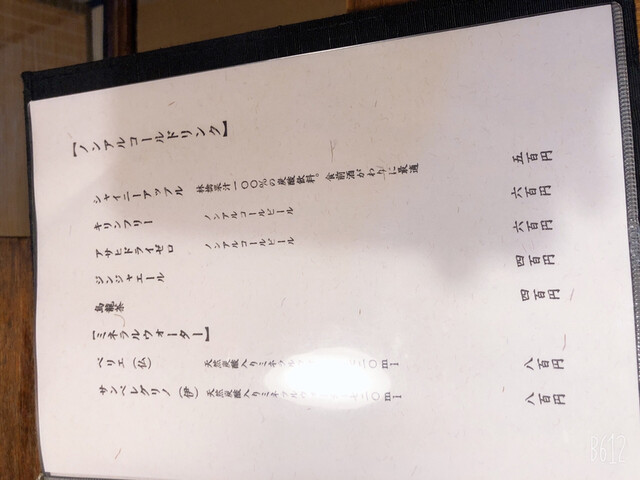 【ノンアルコールドリンク】
シャイニーアップル 林檎果汁一〇〇%の炭酸飲料。食前酒がわりに最適 五百円
キリンフリー ノンアルコールビール 六百円
アサヒドライゼロ ノンアルコールビール 六百円
ジンジャエール 四百円
烏龍茶 四百円
【ミネラルウォーター】
ペリエ(仏) 天然炭酸入りミネラル 五〇ml 八百円
サンペレグリノ(伊) 天然炭酸入りミネラル 五〇ml 八百円
B612